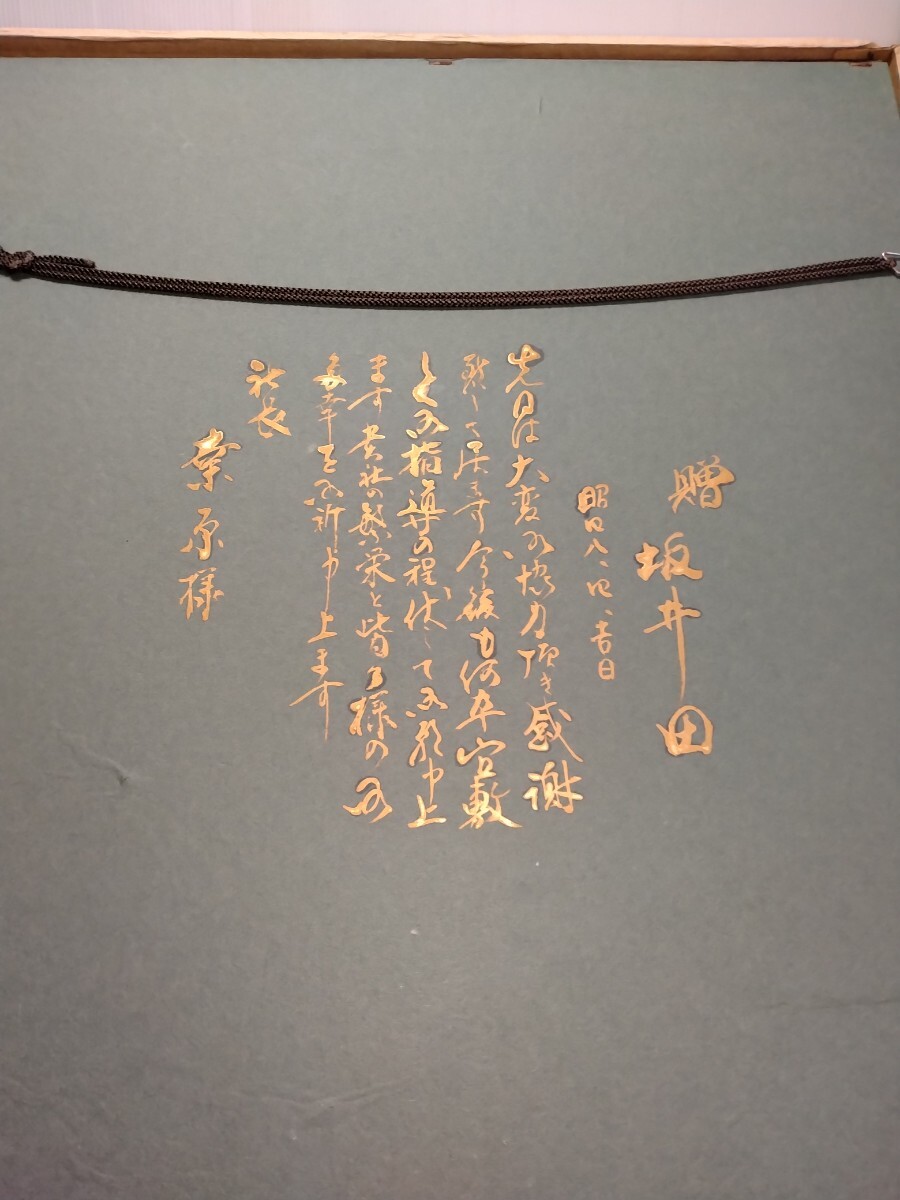 贈 坂井田
昭和八、四、吉日
先日は大変お協力頂き感謝
致して居ます今後も何卒宜敷
しくお指導の程伏してお願申上
ます 貴社の繁栄と皆々様のお
多幸をお祈り申上ます
社長
桑原様